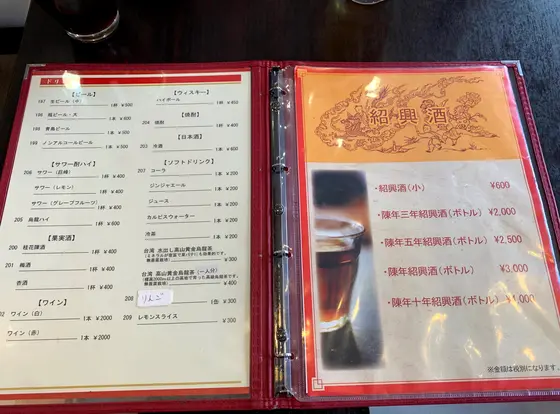 ドリ
【ビール】
187 生ビール(小) 1杯 ¥500
188 瓶ビール・大 1本 ¥600
188 青島ビール 1本 ¥500
189 ノンアルコールビール 1本
【サワー酎ハイ】
206 サワー(巨峰) 1杯 ¥400
サワー(レモン) 1杯 ¥400
サワー(グレープフルーツ) 1杯 ¥400
205 烏龍ハイ
【果実酒】
200 桂花陳酒 1杯 ¥400
201 梅酒 1杯 ¥400
杏酒 1杯 ¥400
【ワイン】
02 ワイン(白) 1本 ¥2000
ワイン(赤) 1本 ¥2000
【ウィスキー】
ハイボール 1杯 ¥450
【焼酎】
204 焼酎 1杯 ¥400
【日本酒】
203 冷酒
【ソフトドリンク】
コーラ
ジンジャエール
ジュース
カルピスウォーター
冷茶
台湾 水出し高山黄金烏龍茶
台湾 高山黄金烏龍茶(一人分)
208 りんご 1缶 ¥300
209 レモンスライス ¥300
紹興酒
・紹興酒(小) ¥600
・陳年三年紹興酒(ボトル) ¥2,000
・陳年五年紹興酒(ボトル) ¥2,500
・陳年紹興酒(ボトル) ¥3,000
・陳年十年紹興酒(ボトル)
※金額は税別になります。